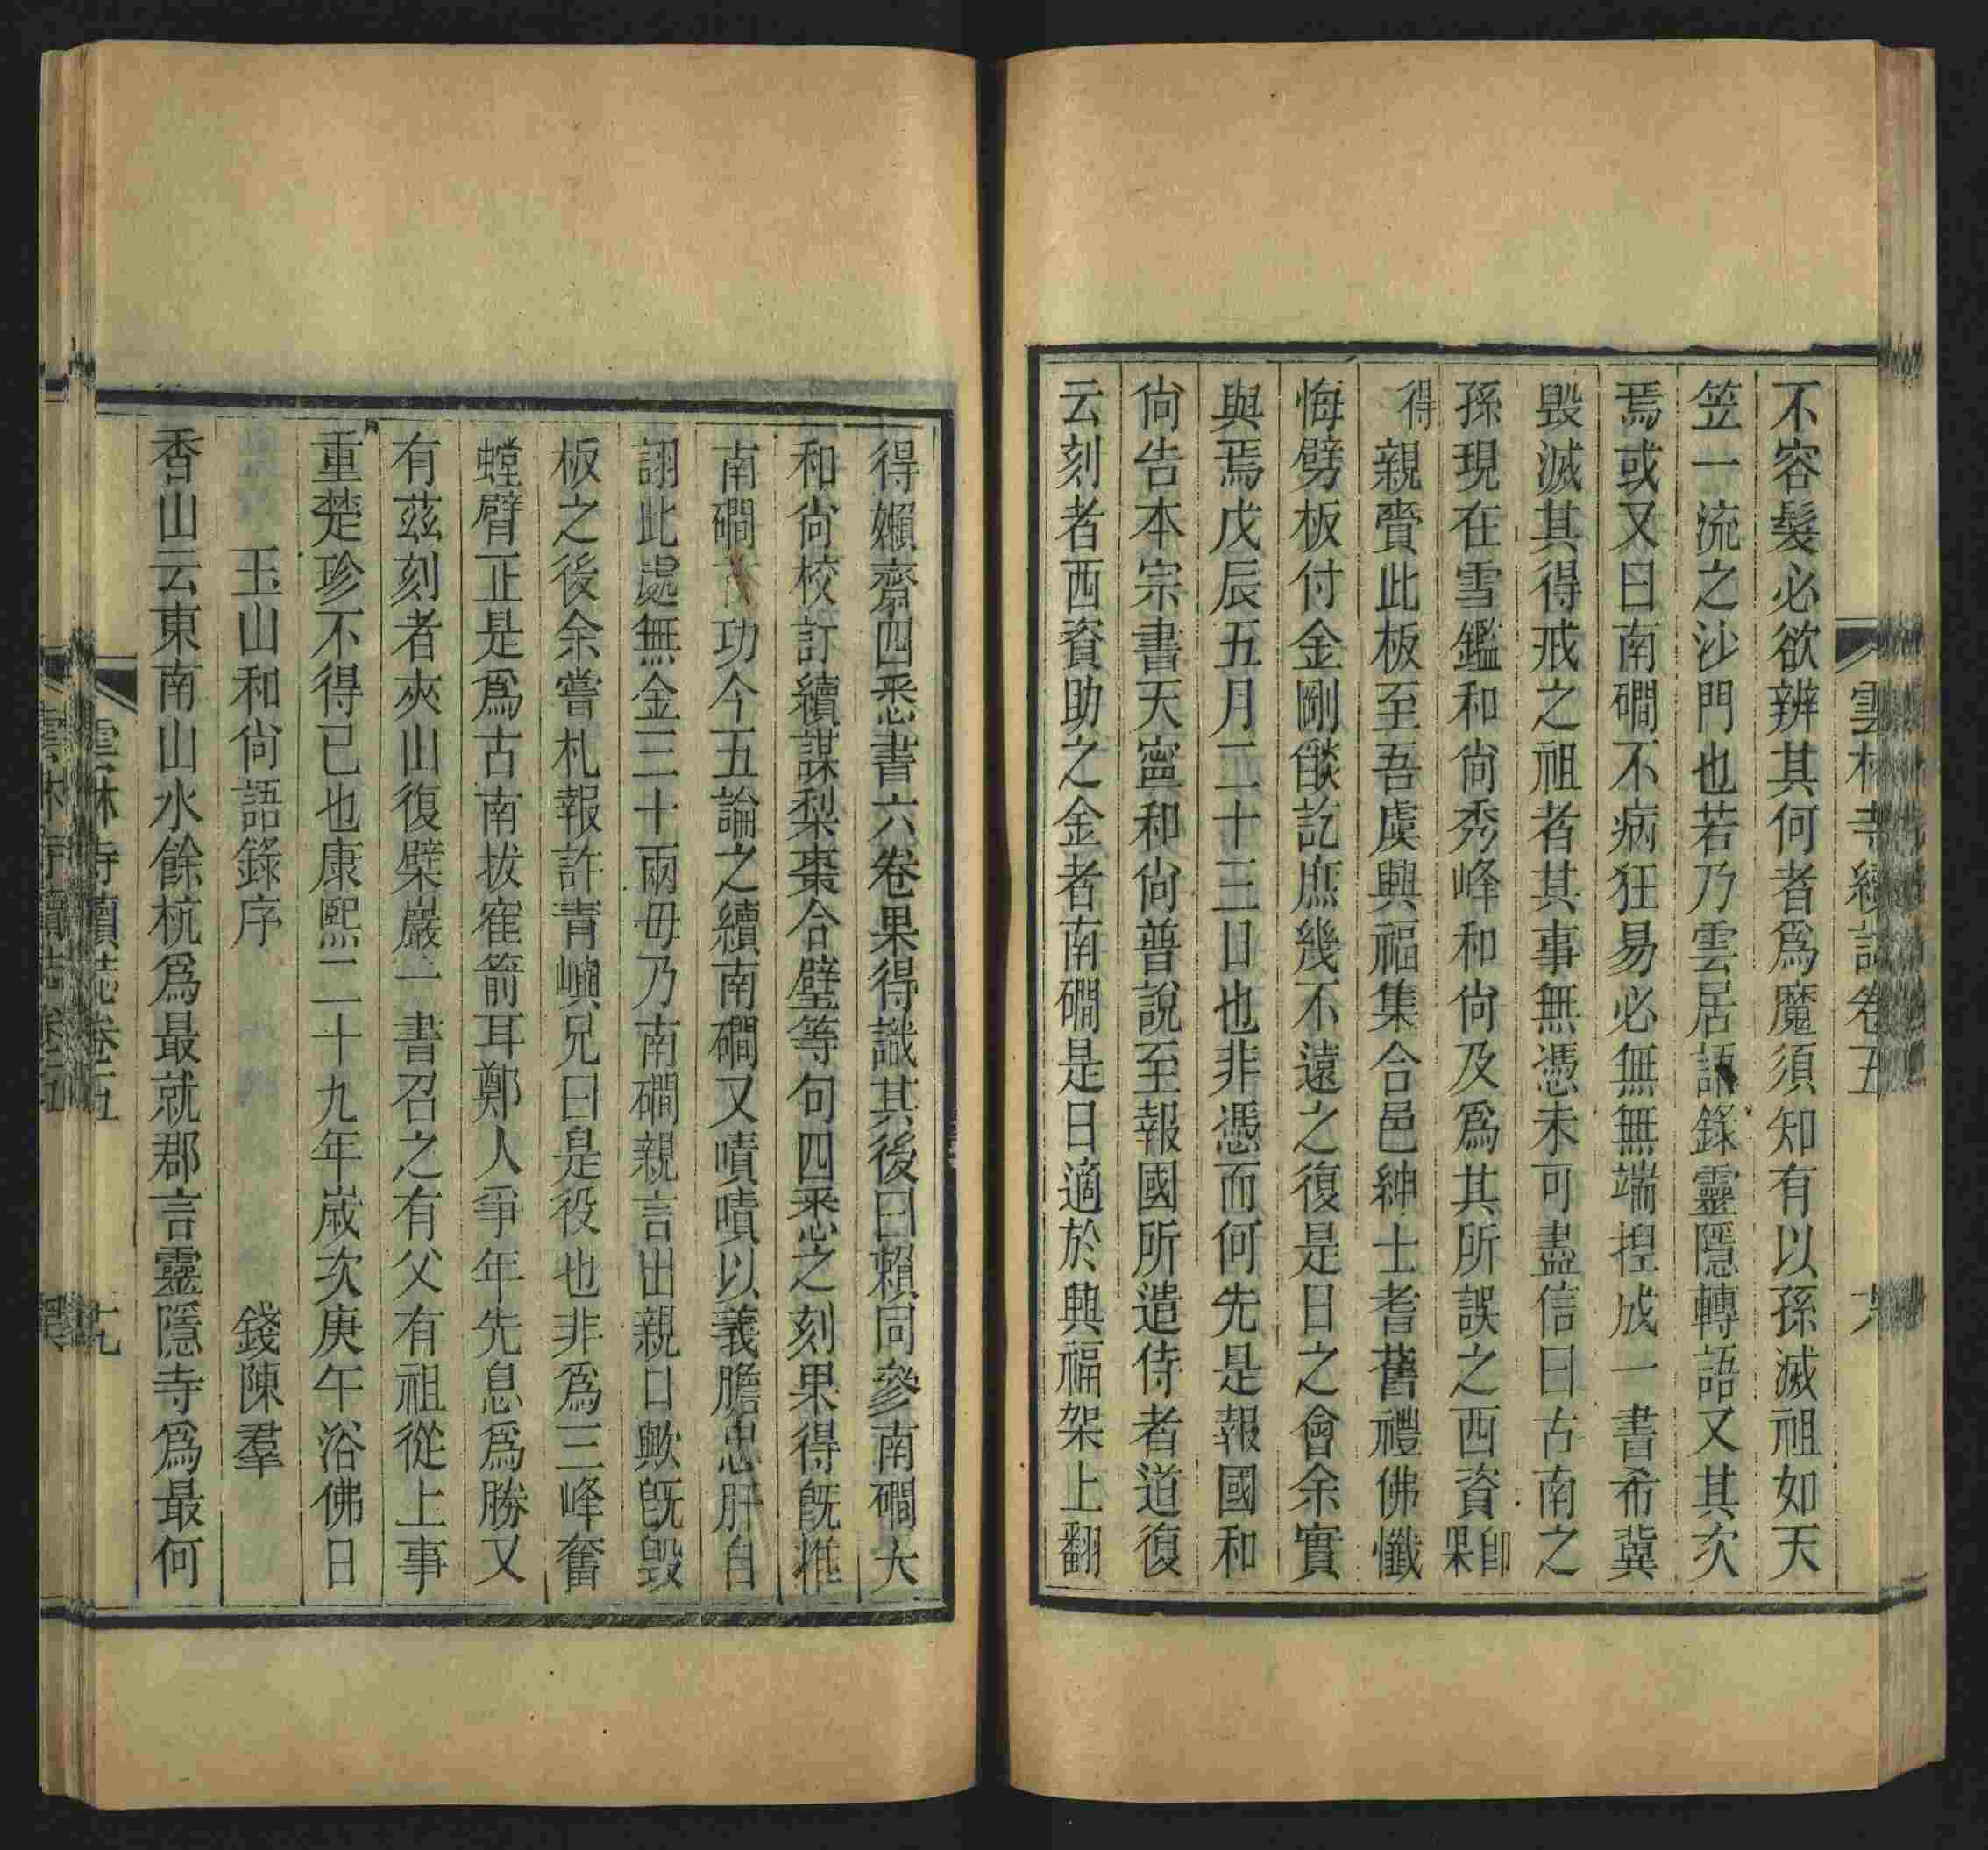 雲林寺續誌卷五
不容髮必欲辨其何者為魔須知有以孫滅祖如天
笠一流之沙門也若乃雲居語錄靈隱轉語又其次
焉或又曰南磵不病狂易必無無端揑成一書希冀
毀滅其得戒之祖者其事無憑未可盡信曰古南之
孫現在雪鑑和尙秀峰和尙及為其所誤之西資卽果
得親賫此板至吾虞興福集合邑紳士耆舊禮佛懺
悔劈板付金剛燄訖庶幾不遠之復是日之會余實
與焉戊辰五月二十三日也非憑而何先是報國和
尙告本宗書天寧和尙普說至報國所遣侍者道復
云刻者西資助之金者南磵是日適於興福架上翻
得嬾齋四悉書六卷果得識其後曰賴同參南磵大
和尙校訂續謀梨棗合璧等句四悉之刻果得旣推
南磵功今五論之續南磵又嘖嘖以義膽忠肝自
詡此處無金三十兩毋乃南磵親言出親口歟旣毀
板之後余嘗札報許青嶼兄曰是役也非為三峰奮
螳臂正是為古南拔寉箭耳鄭人爭年先息為勝又
有茲刻者夾山復檗巖一書召之有父有祖從上事
重楚珍不得已也康熙二十九年歲次庚午浴佛日
玉山和尙語錄序 錢陳羣
香山云東南山水餘杭為最就郡言靈隱寺為最何
雲林寺續誌卷五 十九